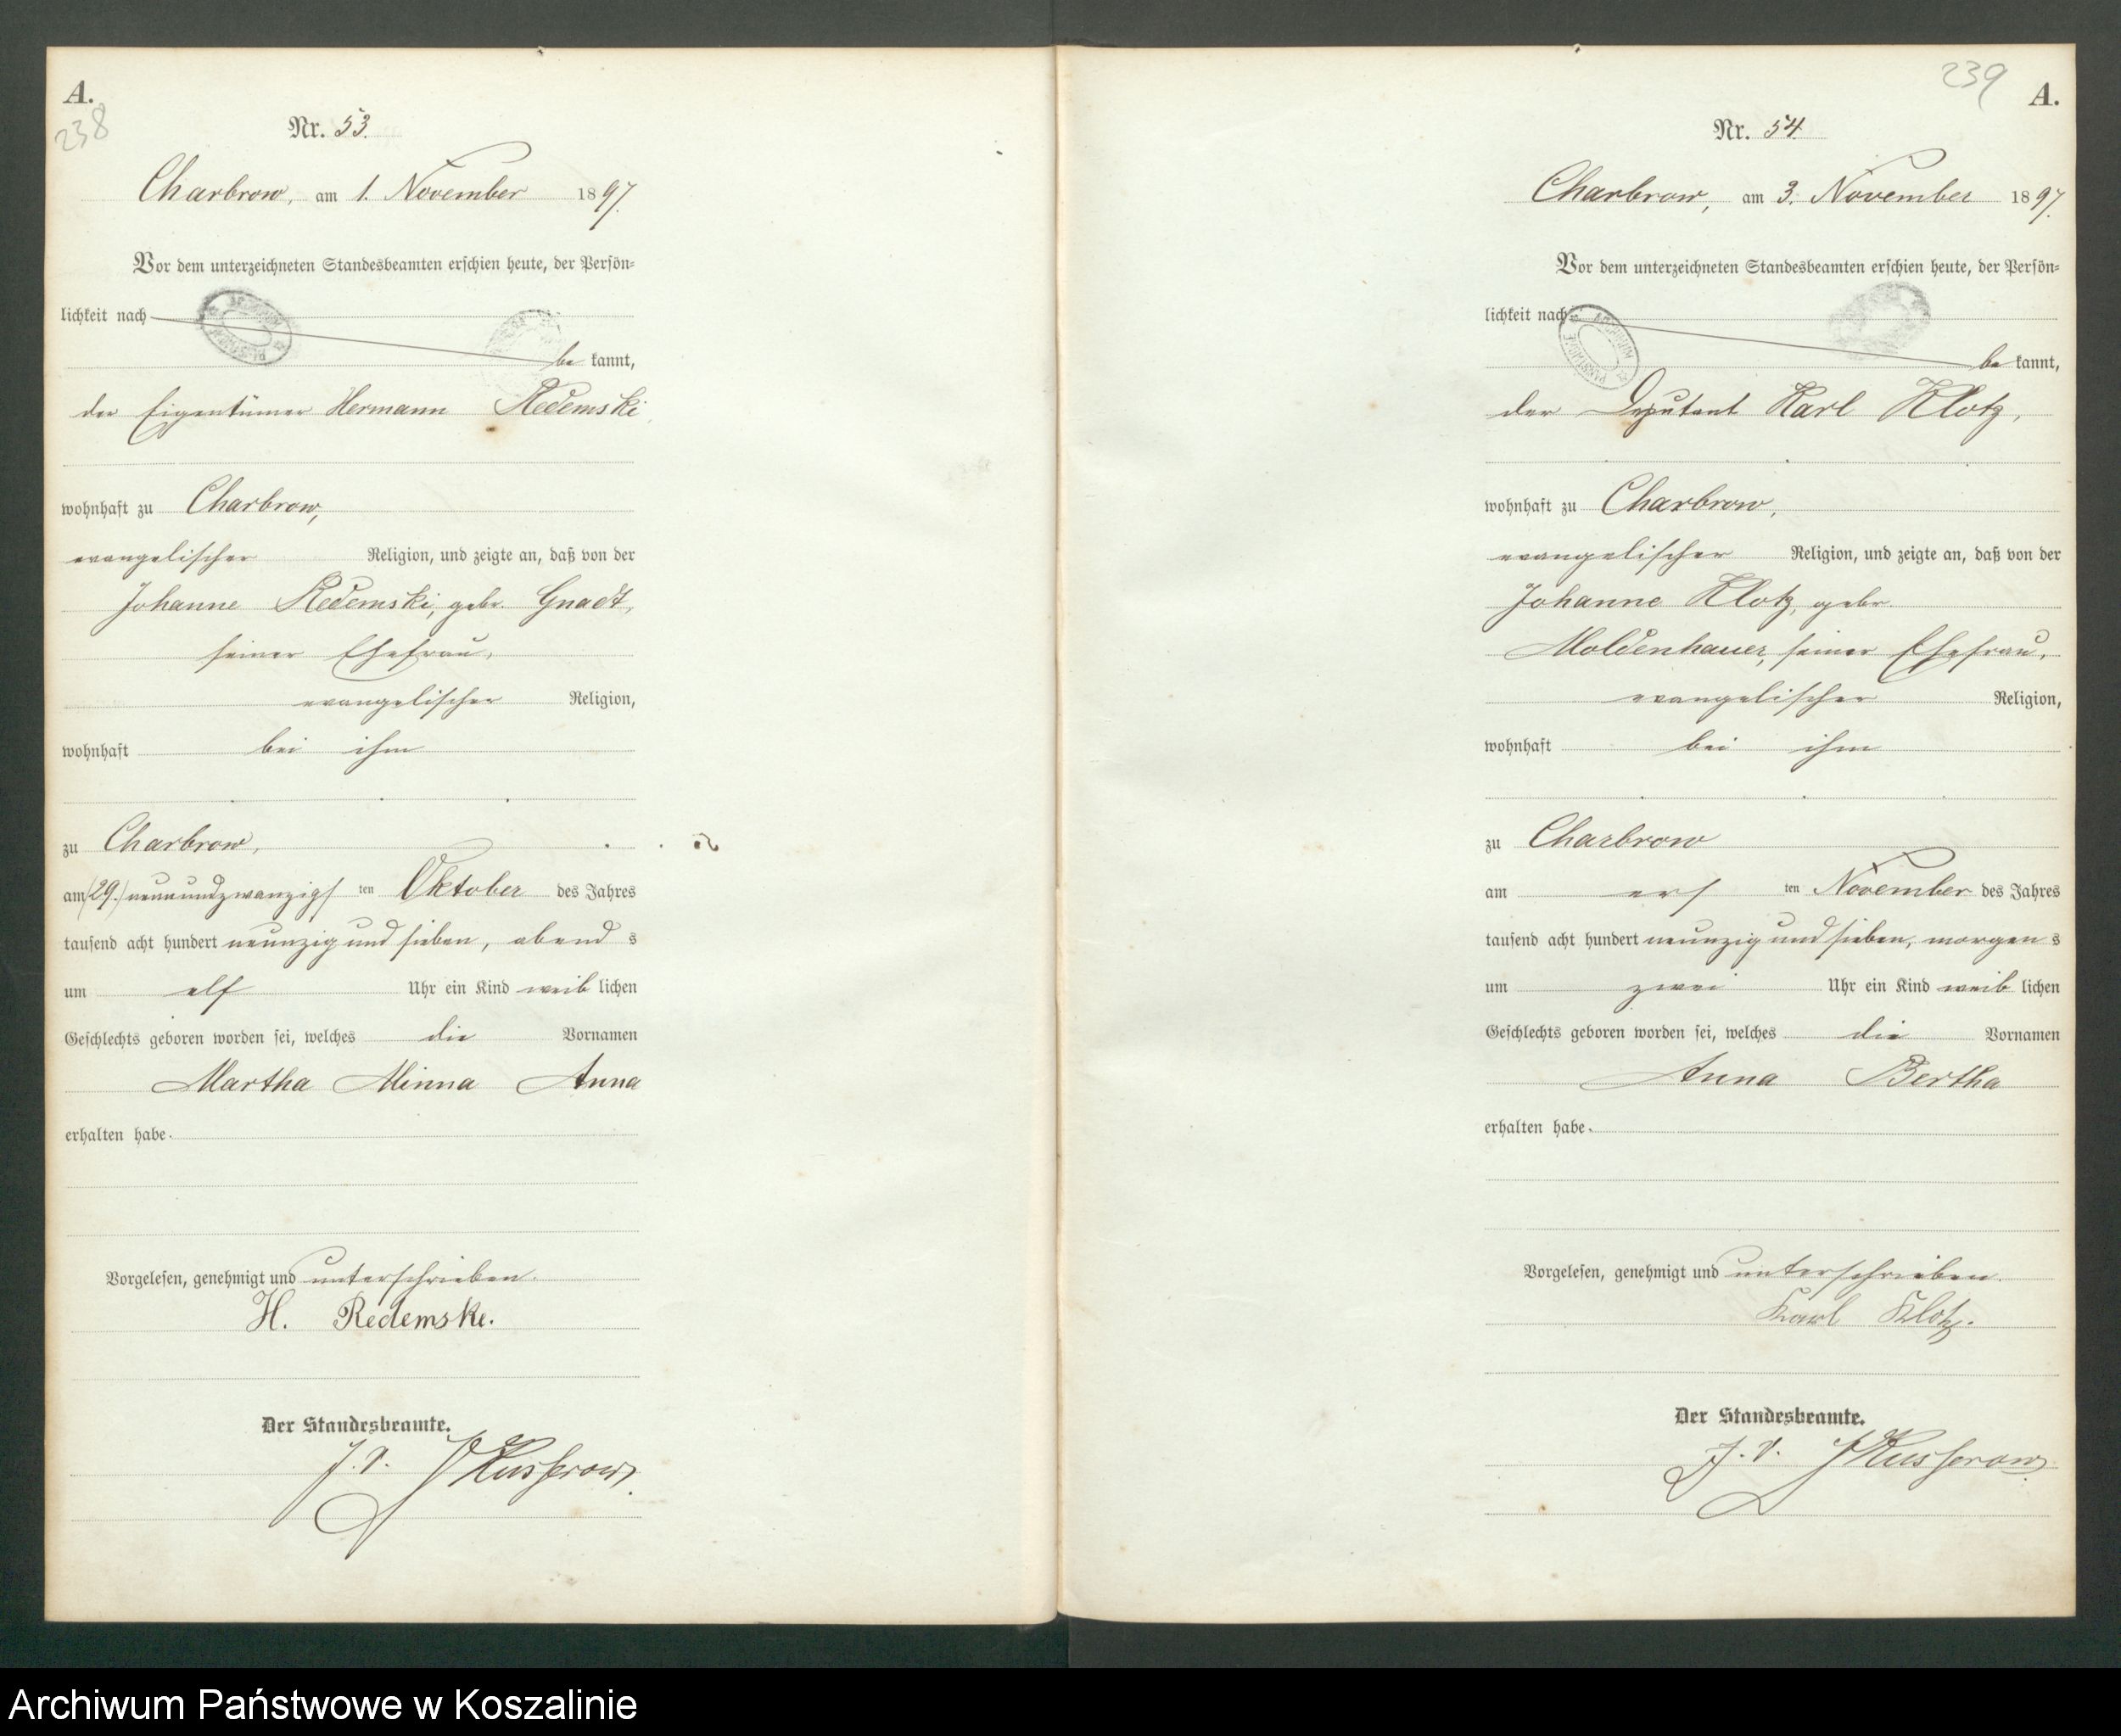 A.
238
Nr. 53.
Charbrow, am 1. November 1897.
Vor dem unterzeichneten Standesbeamten erschien heute, der Persön-
lichkeit nach
be kannt,
der Eigentümer Hermann Redemski,
wohnhaft zu Charbrow,
evangelischer Religion, und zeigte an, daß von der
Johanne Redemski, gebr. Gnadt,
seiner Ehefrau,
evangelischer Religion,
wohnhaft bei ihm
zu Charbrow,
am (29.) neunundzwanzigs ten Oktober des Jahres
tausend acht hundert neunzig und sieben, abend s
um elf Uhr ein Kind weib lichen
Geschlechts geboren worden sei, welches die Vornamen
Martha Minna Anna
erhalten habe.
Vorgelesen, genehmigt und unterschrieben.
H. Redemske.
Der Standesbeamte.
J. V. Kusserow.
239
A.
Nr. 54
Charbrow, am 3. November 1897.
Vor dem unterzeichneten Standesbeamten erschien heute, der Persön-
lichkeit nach
be kannt,
der Deputant Karl Klotz,
wohnhaft zu Charbrow,
evangelischer Religion, und zeigte an, daß von der
Johanne Klotz, gebr.
Moldenhauer, seiner Ehefrau,
evangelischer Religion,
wohnhaft bei ihm
zu Charbrow
am ers ten November des Jahres
tausend acht hundert neunzig und sieben, morgen s
um zwei Uhr ein Kind weib lichen
Geschlechts geboren worden sei, welches die Vornamen
Anna Bertha
erhalten habe.
Vorgelesen, genehmigt und unterschrieben.
Karl Klotz.
Der Standesbeamte.
J. V. Kusserow
Archiwum Państwowe w Koszalinie